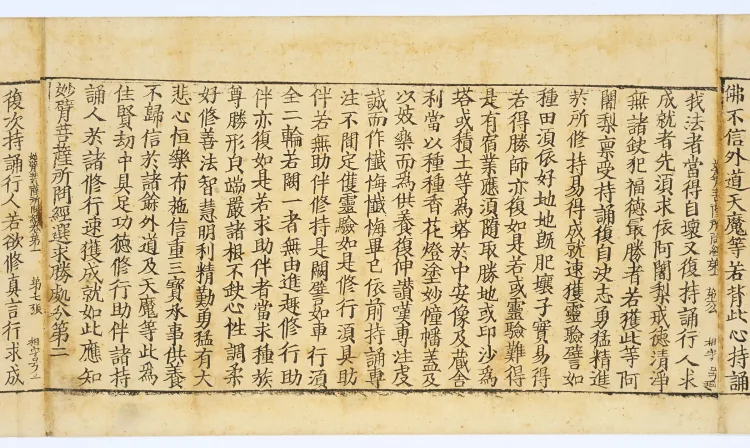 佛不信外道天魔等若背此心持誦
妙臂菩薩所問經卷第一 第六張 相字号
我法者當得自壞又復持誦行人求
成就者先須求依阿闍梨戒德清淨
無諸鈌犯福德最勝者若獲此等阿
闍梨稟受持誦復自決志勇猛精進
於所修持易得成就速獲靈驗譬如
種田須依好地地旣肥壤子實易得
若得勝師亦復如是若或靈驗難得
是有宿業應須隨取勝地或印沙為
塔或積土等為塔於中安像及藏舍
利當以種種香花燈塗妙幢幡蓋及
以妓樂而為供養復伸讃嘆專注虔
誠而作懺悔懺悔畢已依前持誦專
注不間定獲靈驗如是修行須具助
伴若無助伴修持是闕譬如車行須
全二輪若闕一者無由進趣修行助
伴亦復如是若求助伴者當求種族
尊勝形皃端嚴諸根不鈌心性調柔
好修善法智慧明利精勤勇猛有大
悲心恒樂布施信重三寶承事供養
不歸信於諸餘外道及天魔等此為
佳賢劫中具足功德修行助伴諸持
誦人於諸修行速獲成就如此應知
妙臂菩薩所問經選求勝處分第二
妙臂菩薩所問經卷第一 第七張 相字号
復次持誦行人若欲修真言行求成